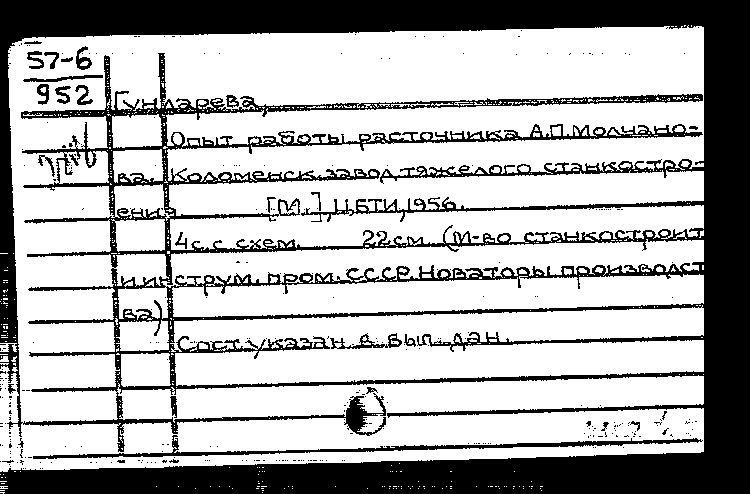 57-6
952
Гунларева,
Опыт работы расточника А.П.Молчано-
ва. Коломенск.завод тяжелого станкостро-
ения. [М.], ЦБТИ, 1956.
4с.с схем. 22см (М-во станкостроит
и инструм. пром. СССР. Новаторы производст
ва)
Сост.указан в вып. дан.